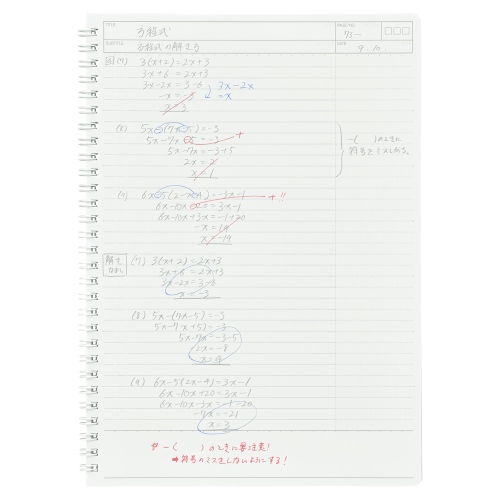 TITLE 方程式
SUBTITLE 方程式の解き方
PAGE/NO.
DATE 9.10.
3(x+2)=2x+3
3x+6=2x+3
3x-2x=3-6
3x-2x
=x
x=3
(8) 5x-(7x-5)=-3
5x-7x-5=-3
+
5x-7x=-3+5
2x=2
x=1
-( )のときに
符号をミスしがち。
6x-5(2x-4)=3x-1
6x-10x-20=3x-1
+!!
6x-10x+3x=-1+20
-x=19
x=-19
解き
なおし
(7) 3(x+2)=2x+3
3x+6=2x+3
3x-2x=3-6
x=-3
(8) 5x-(7x-5)=-3
5x-7x+5=-3
5x-7x=-3-5
-2x=-8
x=4
(9) 6x-5(2x-4)=3x-1
6x-10x+20=3x-1
6x-10x-3x=-1-20
-7x=-21
x=3
-( )のときに要注意!
→符号のミスをしないようにする!